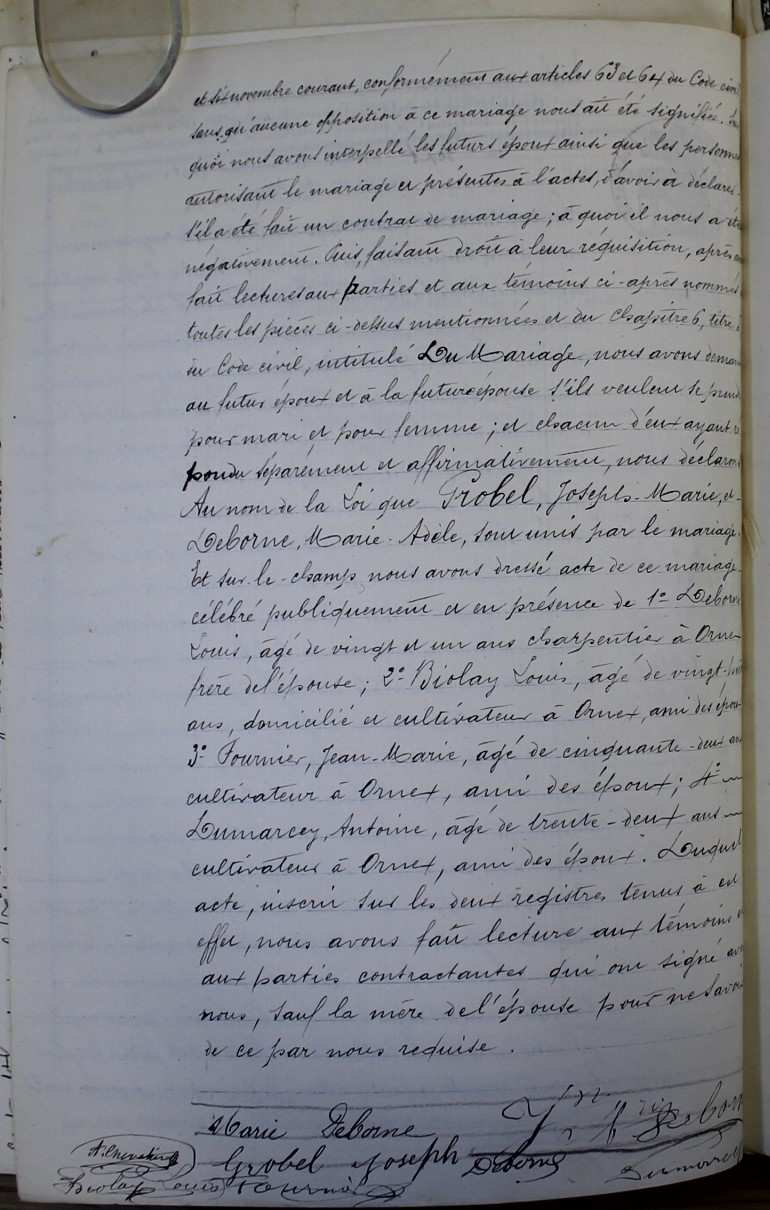 et six novembre courant, conformément aux articles 63 et 64 du Code civil
sans qu'aucune opposition à ce mariage nous ait été signifiée.
quoi nous avons interpellé les futurs époux ainsi que les personnes
autorisant le mariage et présentes à l'actes, d'avoir à déclarer
s'il a été fait un contrat de mariage; à quoi il nous a été
négativement. Puis, faisant droit à leur réquisition, après
fait lectures aux parties et aux témoins ci-après nommés
toutes les pièces ci-dessus mentionnées et du chapitre 6, titre
du Code civil, intitulé Du Mariage, nous avons deman
au futur époux et à la future épouse s'ils veulent se prend
pour mari et pour femme; et chacun d'eux ayant ré
pondu séparément et affirmativement, nous déclarons
Au nom de la Loi que Grobel, Joseph-Marie, et-
Deborne, Marie-Adèle, sont unis par le mariage.
Et sur-le-champ nous avons dressé acte de ce mariage
célébré publiquement et en présence de 1º Deborne
Louis, âgé de vingt et un ans charpentier à Ornex
frère de l'épouse; 2º Biolay Louis, âgé de vingt-
ans, domicilié et cultivateur à Ornex, ami des époux
3º Fournier, Jean-Marie, âgé de cinquante-deux ans
cultivateur à Ornex, ami des époux; 4º
Dumarcey, Antoine, âgé de trente-deux ans
cultivateur à Ornex, ami des époux. Duquel
acte, inscrit sur les deux registres tenus à cet
effet, nous avons fait lecture aux témoins et
aux parties contractantes qui ont signé avec
nous, sauf la mère de l'épouse pour ne savoir
de ce par nous requise.
Marie Deborne
Grobel Joseph Deborne
Biolay Louis Fournier